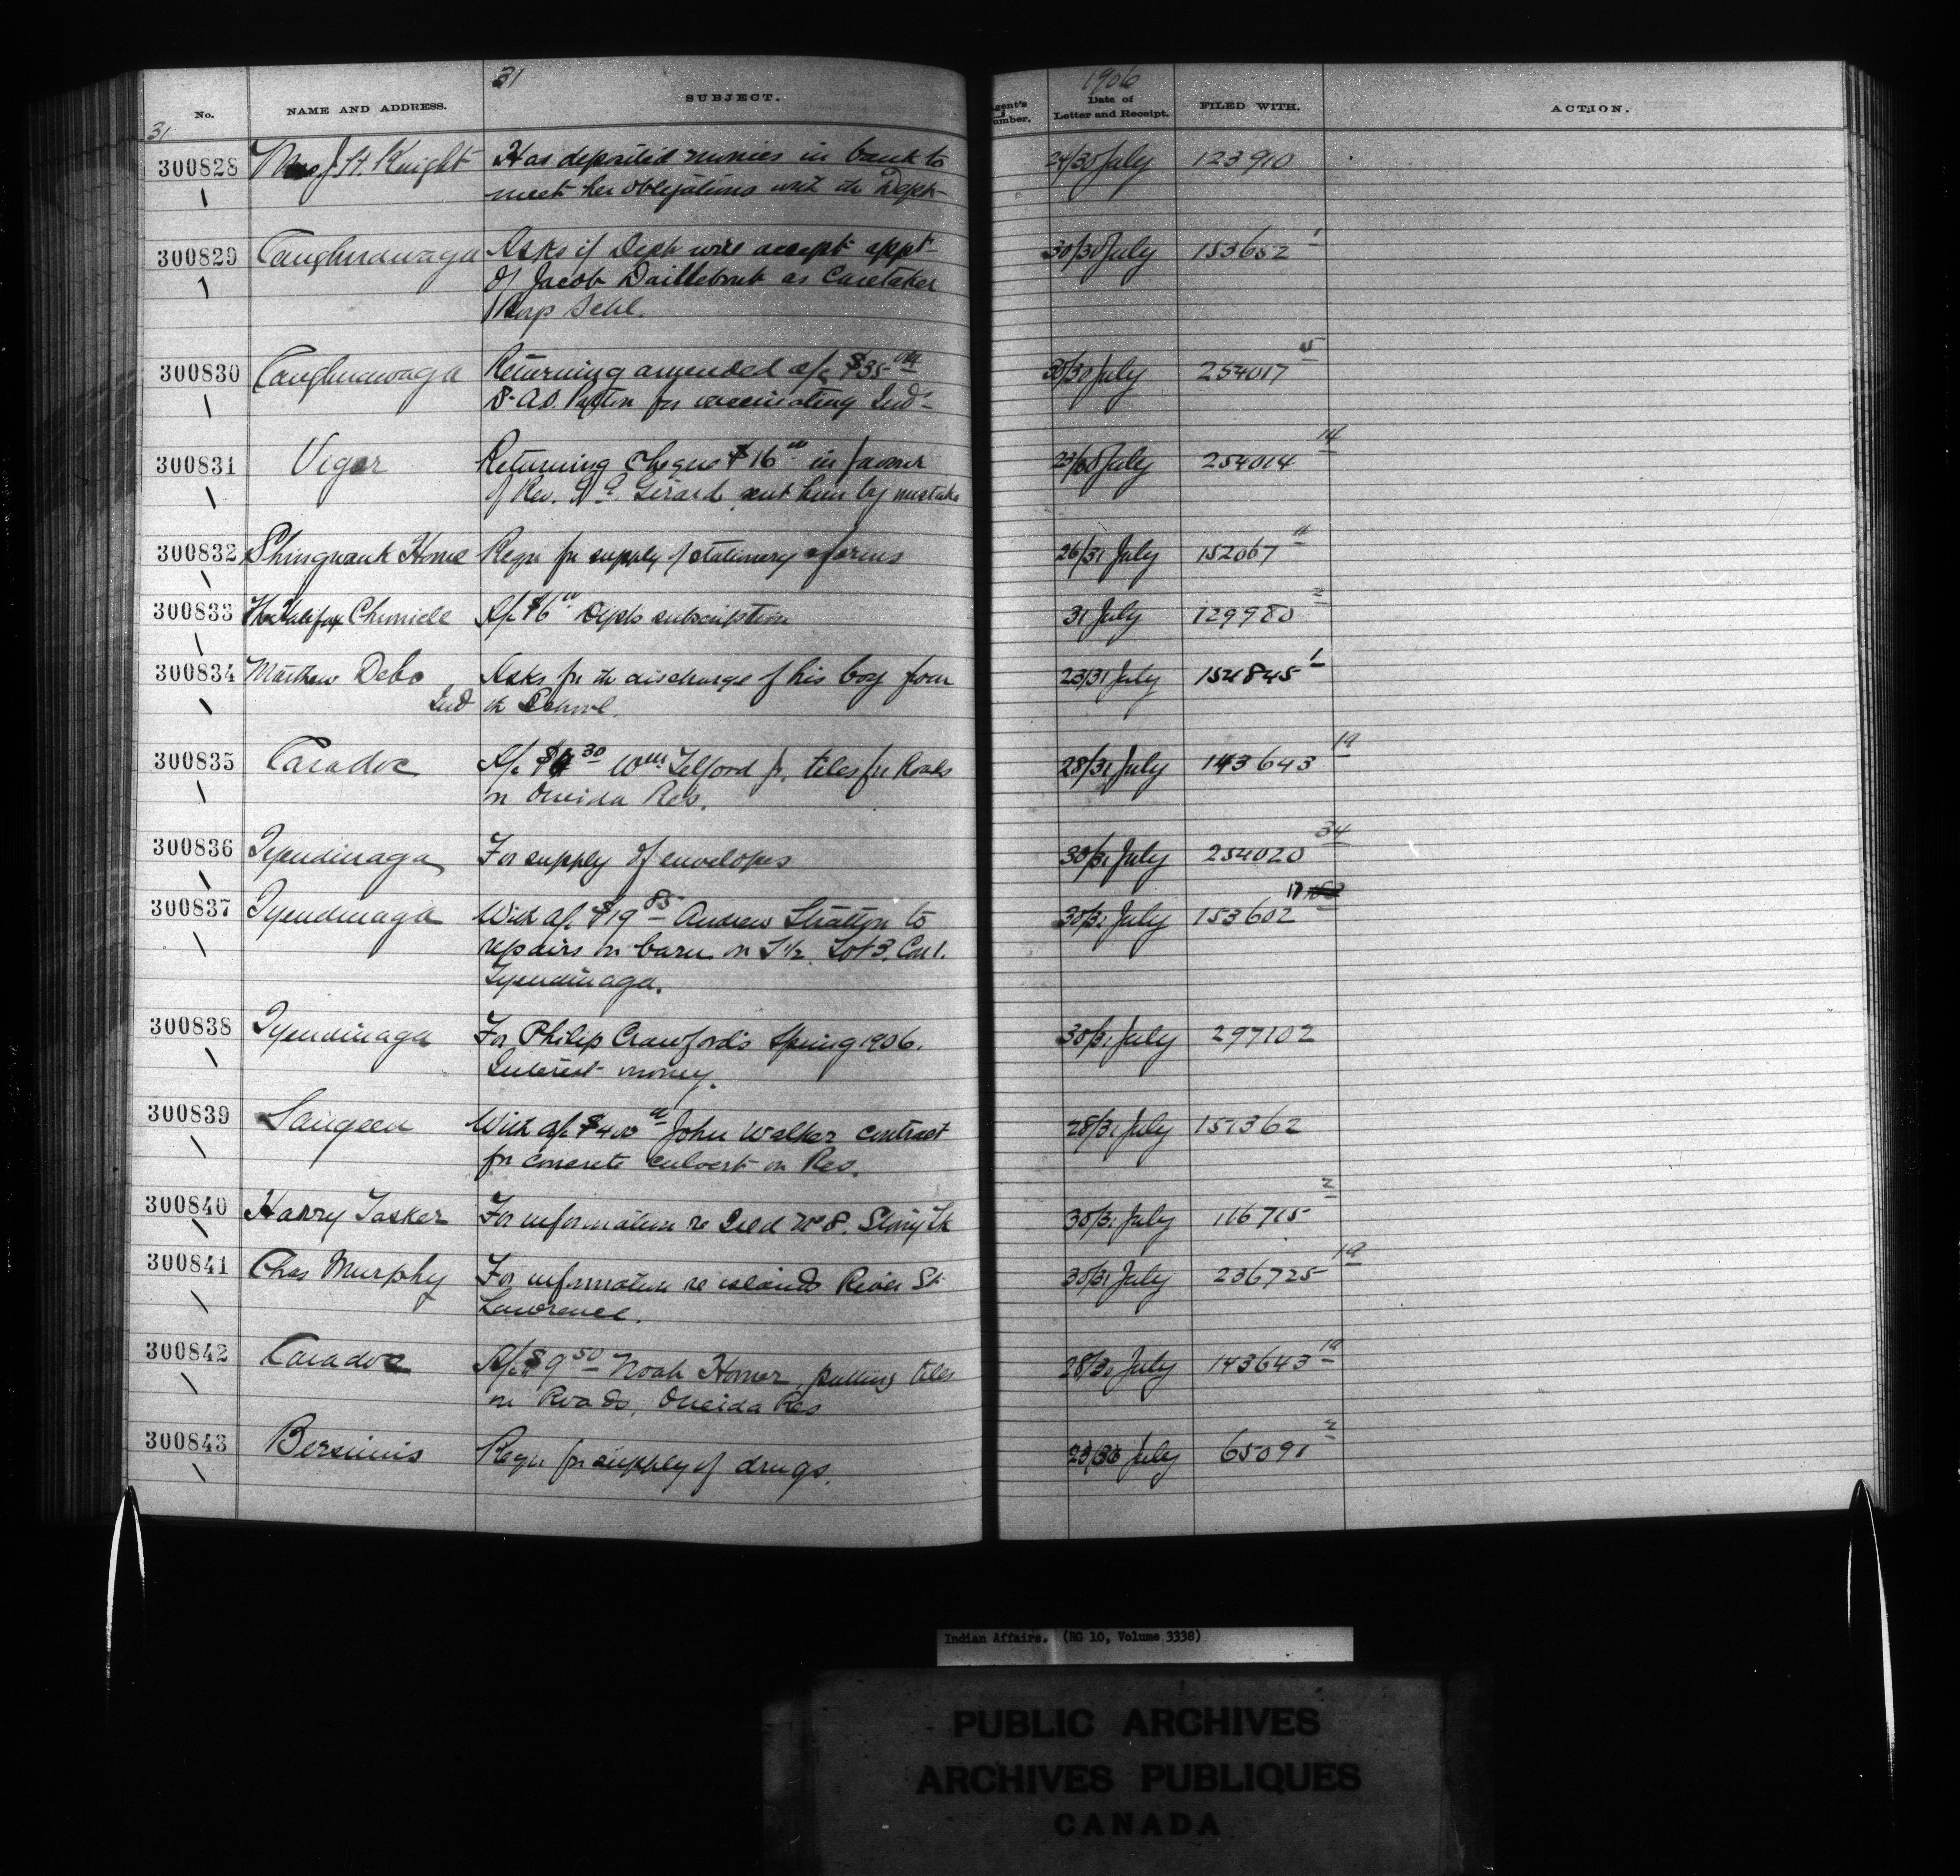 31
1906
No.
NAME AND ADDRESS.
SUBJECT.
gent's
umber.
Date of
Letter and Receipt.
FILED WITH.
ACTION.
31
300828 Mrs J. H. Knight Has deposited monies in bank to 24/30 July 123910
meet her obligations with the Dept
300829 Caughnawaga Asks if Dept will accept appt 30/30 July 153652 1
of Jacob Daillebout as Caretaker
Hosp Schl.
300830 Caughnawaga Returning amended a/c $35 30/30 July 254017 5
D. A.O. Patton for vaccinating Inds
300831 Viger Returning cheque $16 00 in favour July 254014 14
of Rev. Girard sent him by mistake
300832 Shingwauk Home Requ for supply of stationery & forms 26/31 July 152067
300833 The Halifax Chronicle A/c $6 00 Depts subscription 31 July 129980 2
300834 Matthew Debo Asks for the discharge of his boy from 23/31 July 154845 1
Ind the School.
300835 Caradoc A/c 30 Wm Telford jr. tiles for Roads 28/31 July 143643 19
on Oneida Res.
300836 Tyendinaga For supply of envelopes 30/31 July 254020 34
300837 Tyendinaga With a/c $19 85 Andrew Stratton to 30/31 July 153602 17
repairs on barn on S 1/2 Lot 3. Con 1.
Tyendinaga.
300838 Tyendinaga For Philip Crawford's Spring 1906. 30/31 July 297102
Interest money.
300839 Saugeen With a/c $400 00 John Walker contract 28/31 July 157362
for concrete culvert on Res.
300840 Harry Tasker For information re No 8. Smyth 30/31 July 116715 2
300841 Chas Murphy For information re islands River St 30/31 July 236725 19
Lawrence.
300842 Caradoc A/c $9 50 Noah Homer, putting tiles 28/31 July 143643 19
on Roads, Oneida Res
300843 Bersimis Requ for supply of drugs. July 65091 2
Indian Affairs. (RG 10, Volume 3338)
PUBLIC ARCHIVES
ARCHIVES PUBLIQUES
CANADA